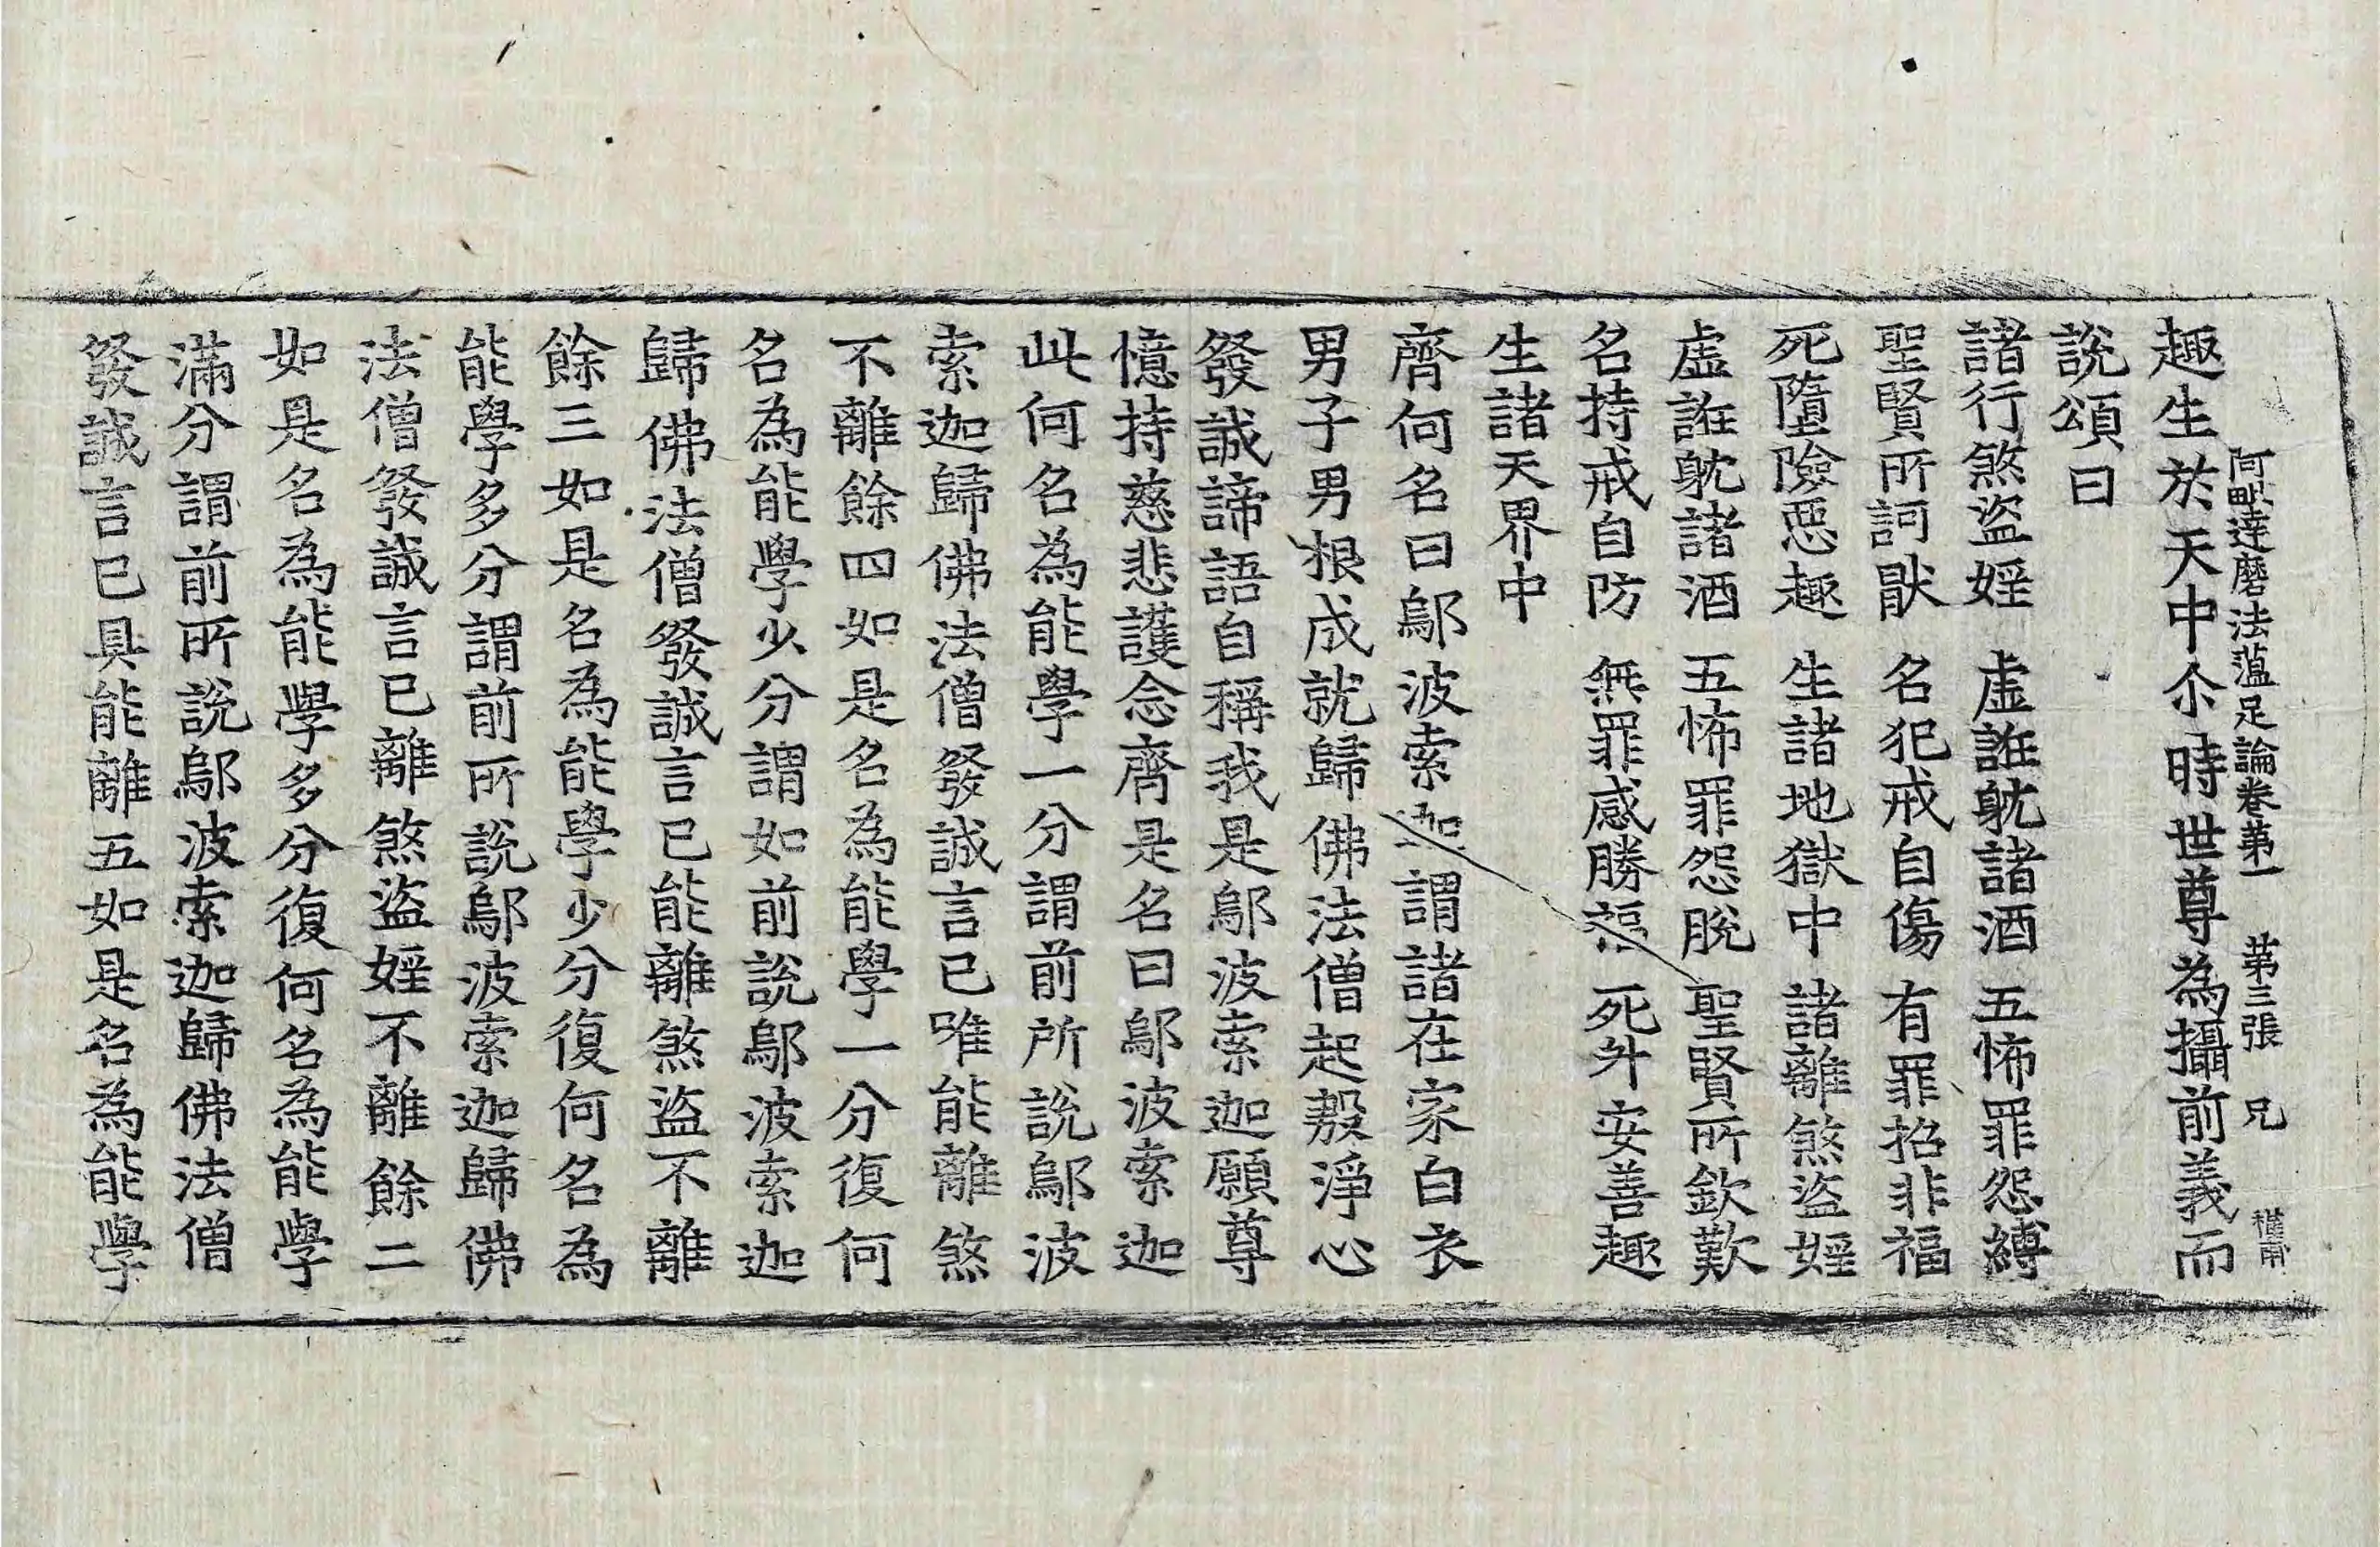 阿毗達磨法蘊足論卷第一　第三張　兄
趣生於天中尒時世尊為攝前義而
說頌曰
諸行煞盜婬　虛誑躭諸酒　五怖罪怨縛
聖賢所訶猒　名犯戒自傷　有罪招非福
死墮險惡趣　生諸地獄中　諸離煞盜婬
虛誑躭諸酒　五怖罪怨脫　聖賢所欽歎
名持戒自防　無罪感勝福　死升安善趣
生諸天界中
齊何名曰鄔波索迦謂諸在家白衣
男子男根成就歸佛法僧起殷淨心
發誠諦語自稱我是鄔波索迦願尊
憶持慈悲護念齊是名曰鄔波索迦
此何名為能學一分謂前所說鄔波
索迦歸佛法僧發誠言已唯能離煞
不離餘四如是名為能學一分復何
名為能學少分謂如前說鄔波索迦
歸佛法僧發誠言已能離煞盜不離
餘三如是名為能學少分復何名為
能學多分謂前所說鄔波索迦歸佛
法僧發誠言已離煞盜婬不離餘二
如是名為能學多分復何名為能學
滿分謂前所說鄔波索迦歸佛法僧
發誠言已具能離五如是名為能學